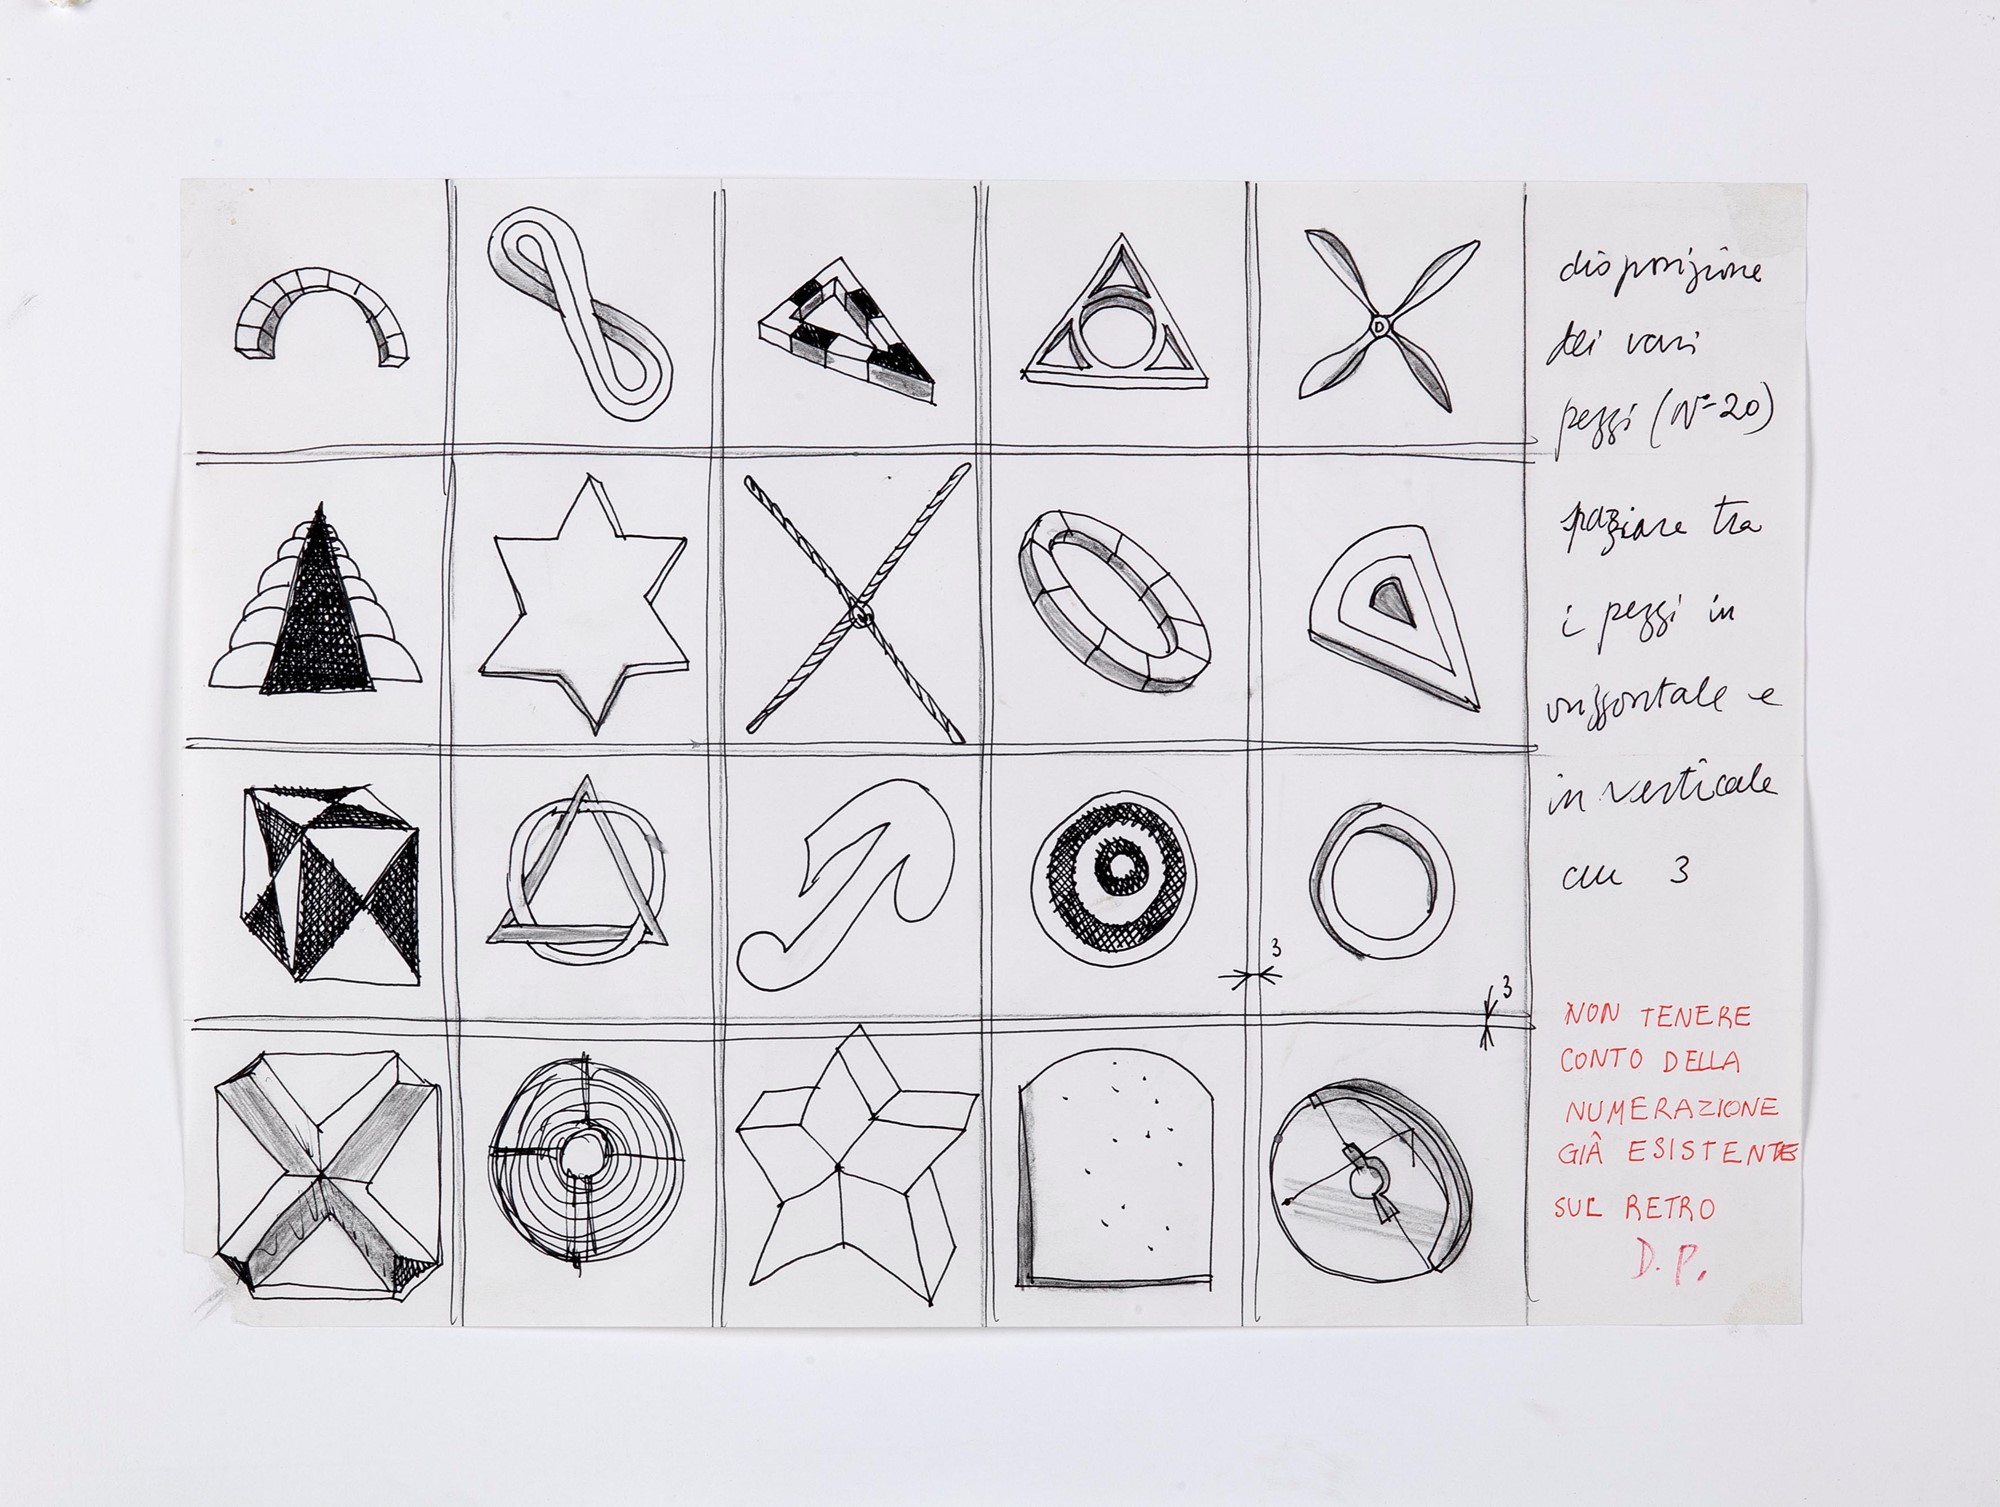 disposizione
dei vari
pezzi (N°=20)
spaziare tra
i pezzi in
orizzontale e
in verticale
cm 3
3
3
D
NON TENERE
CONTO DELLA
NUMERAZIONE
GIÂ ESISTENTE
SUL RETRO
D. P.